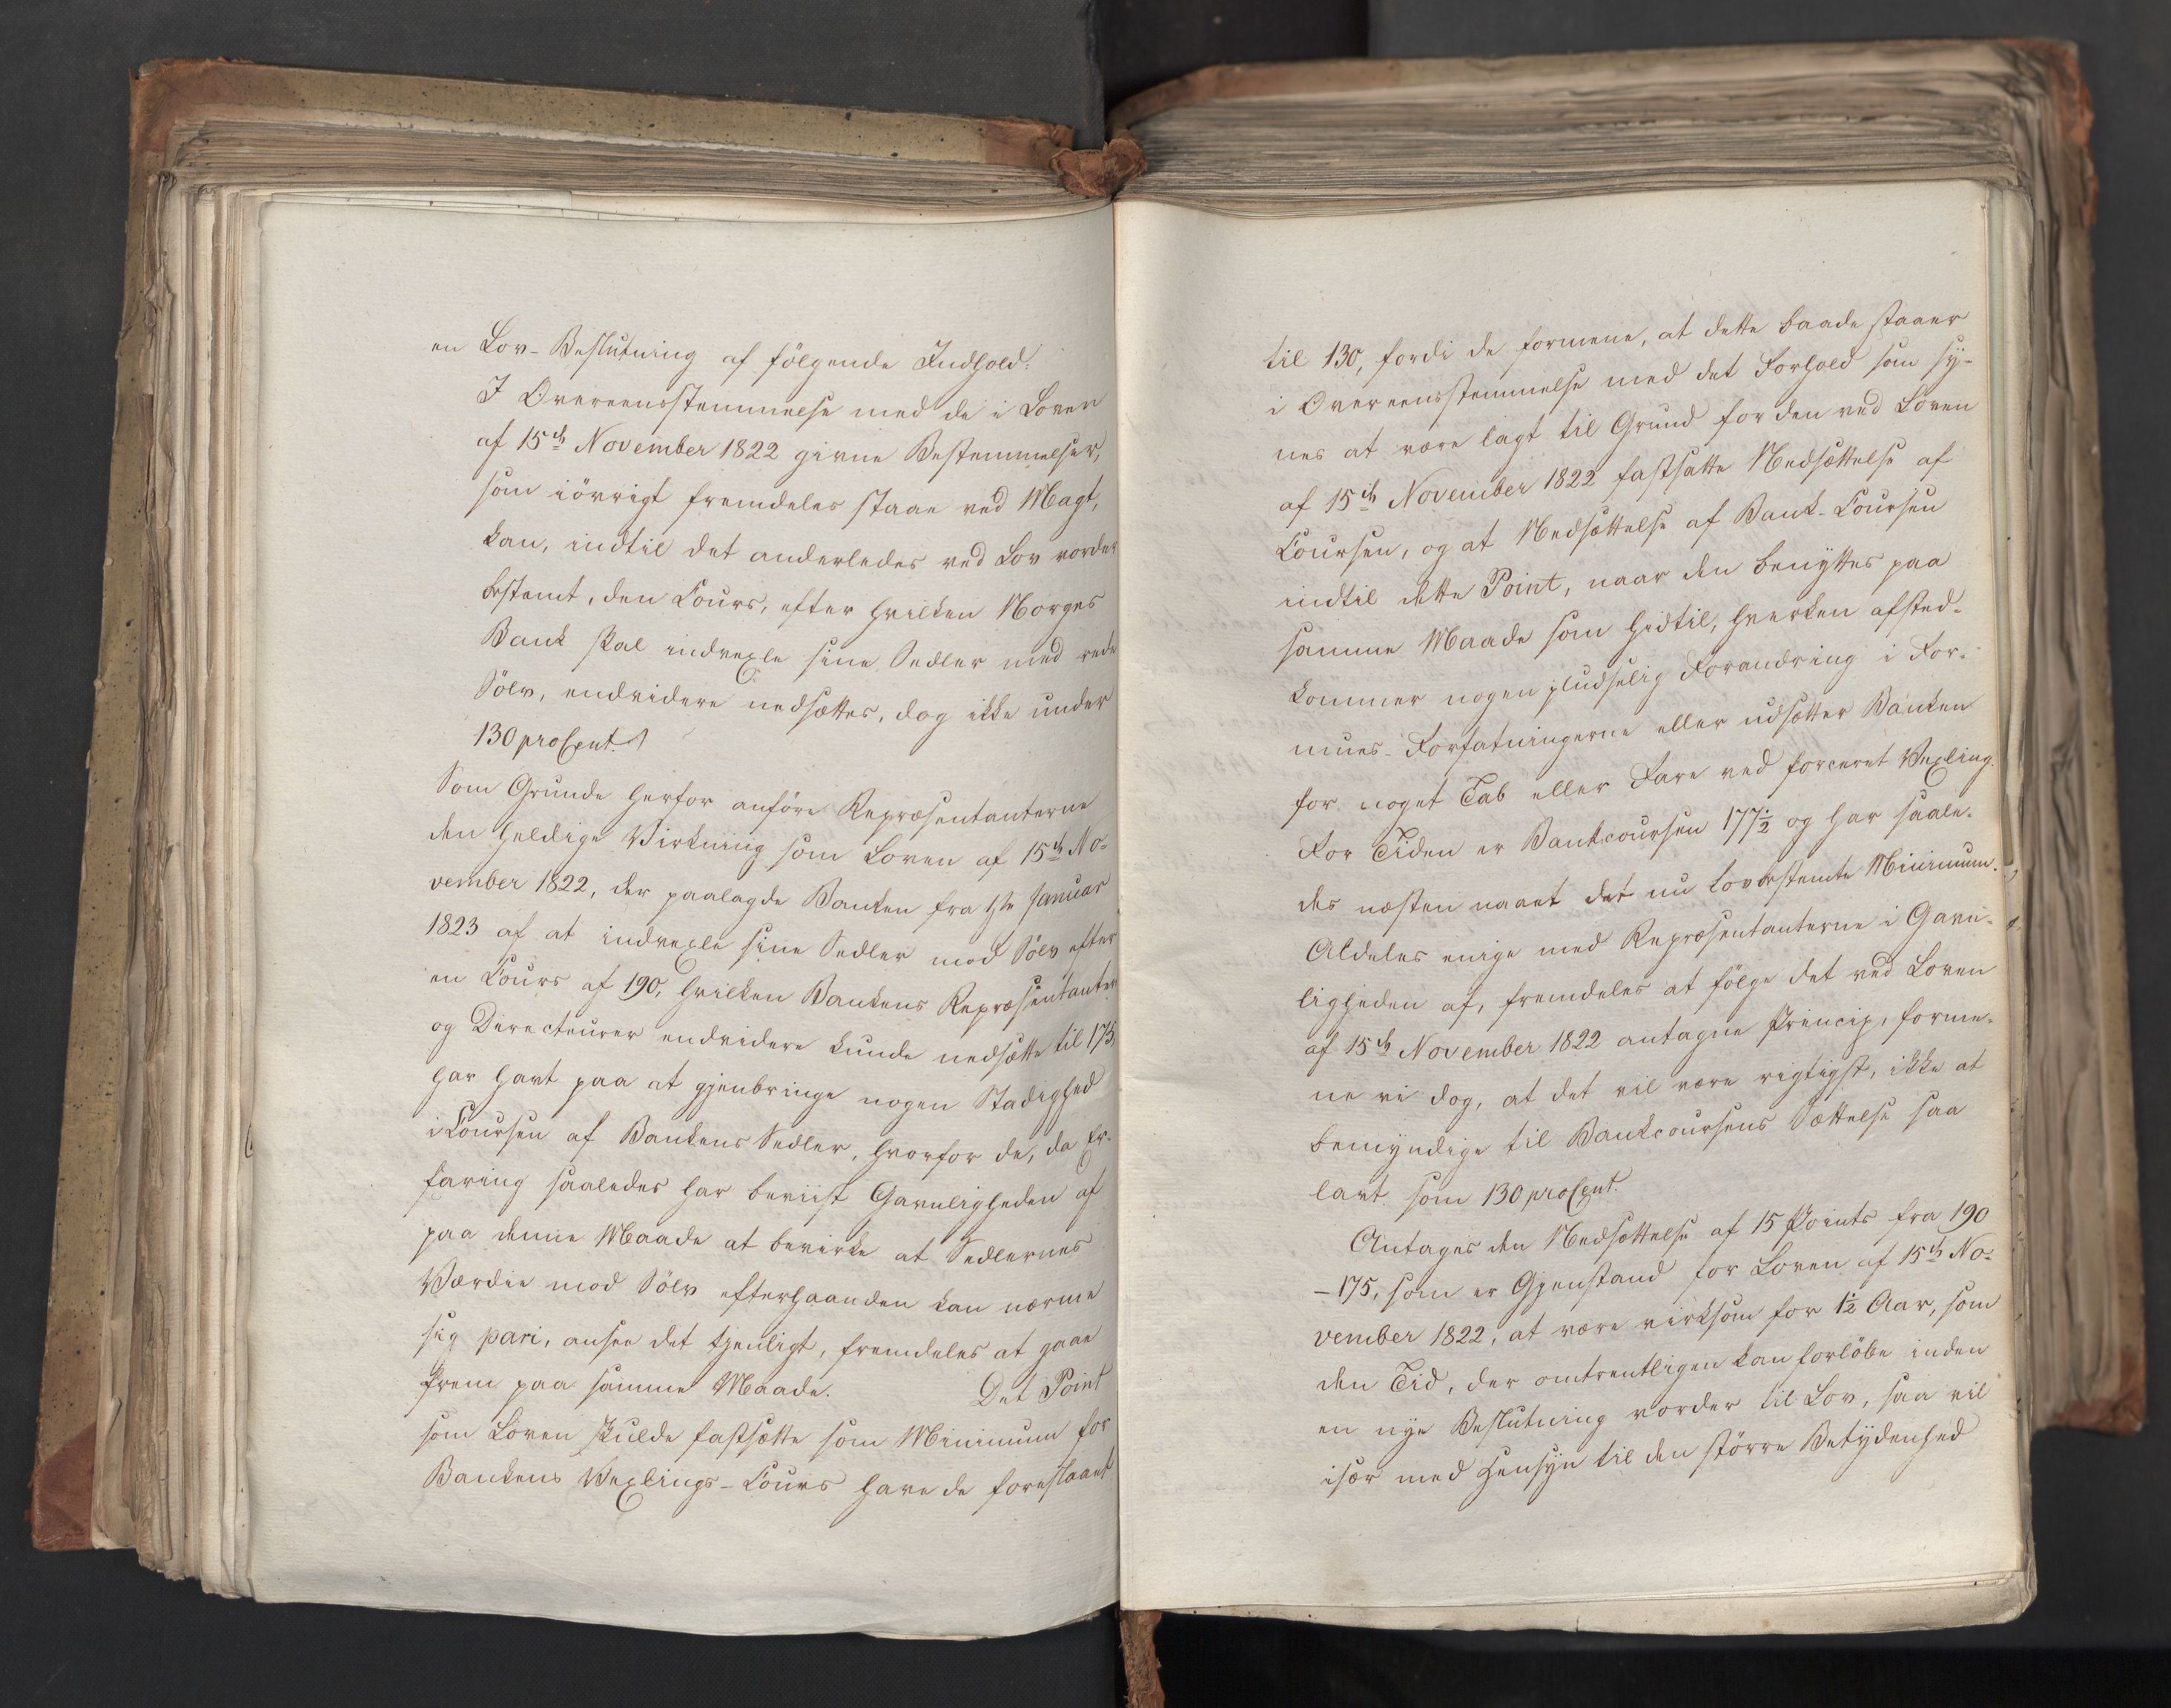 en Lov-Beslutning af følgende Indhold:
I Overeensstemmelse med de i Loven
af 15de November 1822 givne Bestemmelser,
som iövrigt fremdeles staae ved Magt,
kan, indtil det anderledes ved Lov vorder
bestemt, den Cours, efter hvilken Norges
Bank skal indvexle sine Sedler med rede
Sölv, endvidere nedsættes, dog ikke under
130 proCent.
Som Grunde herfor anföre Repræsentanterne
den heldige Virkning som Loven af 15de No-
vember 1822, der paalagde Banken fra 1ste Januar
1823 af at indvexle sine Sedler mod Sölv efter
en Cours af 190, hvilken Bankens Repræsentanter
og Directeurer endvidere kunde nedsætte til 175,
har havt paa at gjenbringe nogen Stadighed
i Coursen af Bankens Sedler, hvorfor de, da Er-
faring saaledes har beviist Gavnligheden af
paa denne Maade at bevirke at Sedlernes
Værdie mod Sölv efterhaanden kan nærme
sig pari, ansee det tjenligt, fremdeles at gaae
frem paa samme Maade. Det Point
som Loven skulde fastsætte som Minimum for
Bankens Vexlings-Cours have de foreslaaet
til 130, fordi de formene, at dette baade staaer
i Overeensstemmelse med det Forhold som sy-
nes at være lagt til Grund for den ved Loven
af 15de November 1822 fastsatte Nedsættelse af
Coursen, og at Nedsættelse af Bank-Coursen
indtil dette Point, naar den benyttes paa
samme Maade som hidtil, hverken afsted-
kommer nogen pludselig Forandring i For-
mues-Forfatningerne eller udsætter Banken
for noget Tab eller Fare ved forceret Vexling.
For Tiden er Bankcoursen 177½ og har saale-
des næsten naaet det nu lovbestemte Minimum.
Aldeles enige med Repræsentanterne i Gavn-
ligheden af, fremdeles at fölge det ved Loven
af 15de November 1822 antagne Princip, forme-
ne vi dog, at det vil være rigtigst, ikke at
bemyndige til Bankcoursens Sættelse saa
lavt som 130 proCent.
Antages den Nedsættelse af 15 Points fra 190
-175, som er Gjenstand for Loven af 15de No-
vember 1822, at være virksom for 1½ Aar, som
den Tid, der omtrentligen kan forlöbe inden
en nye Beslutning vorder til Lov, saa vil
især med Hensyn til den större Betydenhed